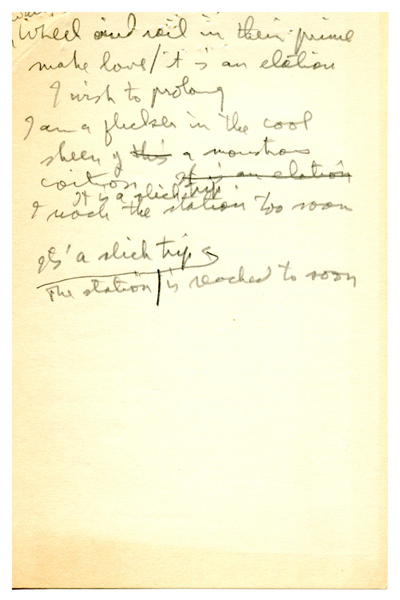 Wheel and rail in their prime
make love / it is an elation
I wish to prolong
I am a flicker in the cool
sheen of this a monstrous
coition It is an elation
It is a slick trip
I reach the station too soon
It's a slick trip
The station is reached to soon